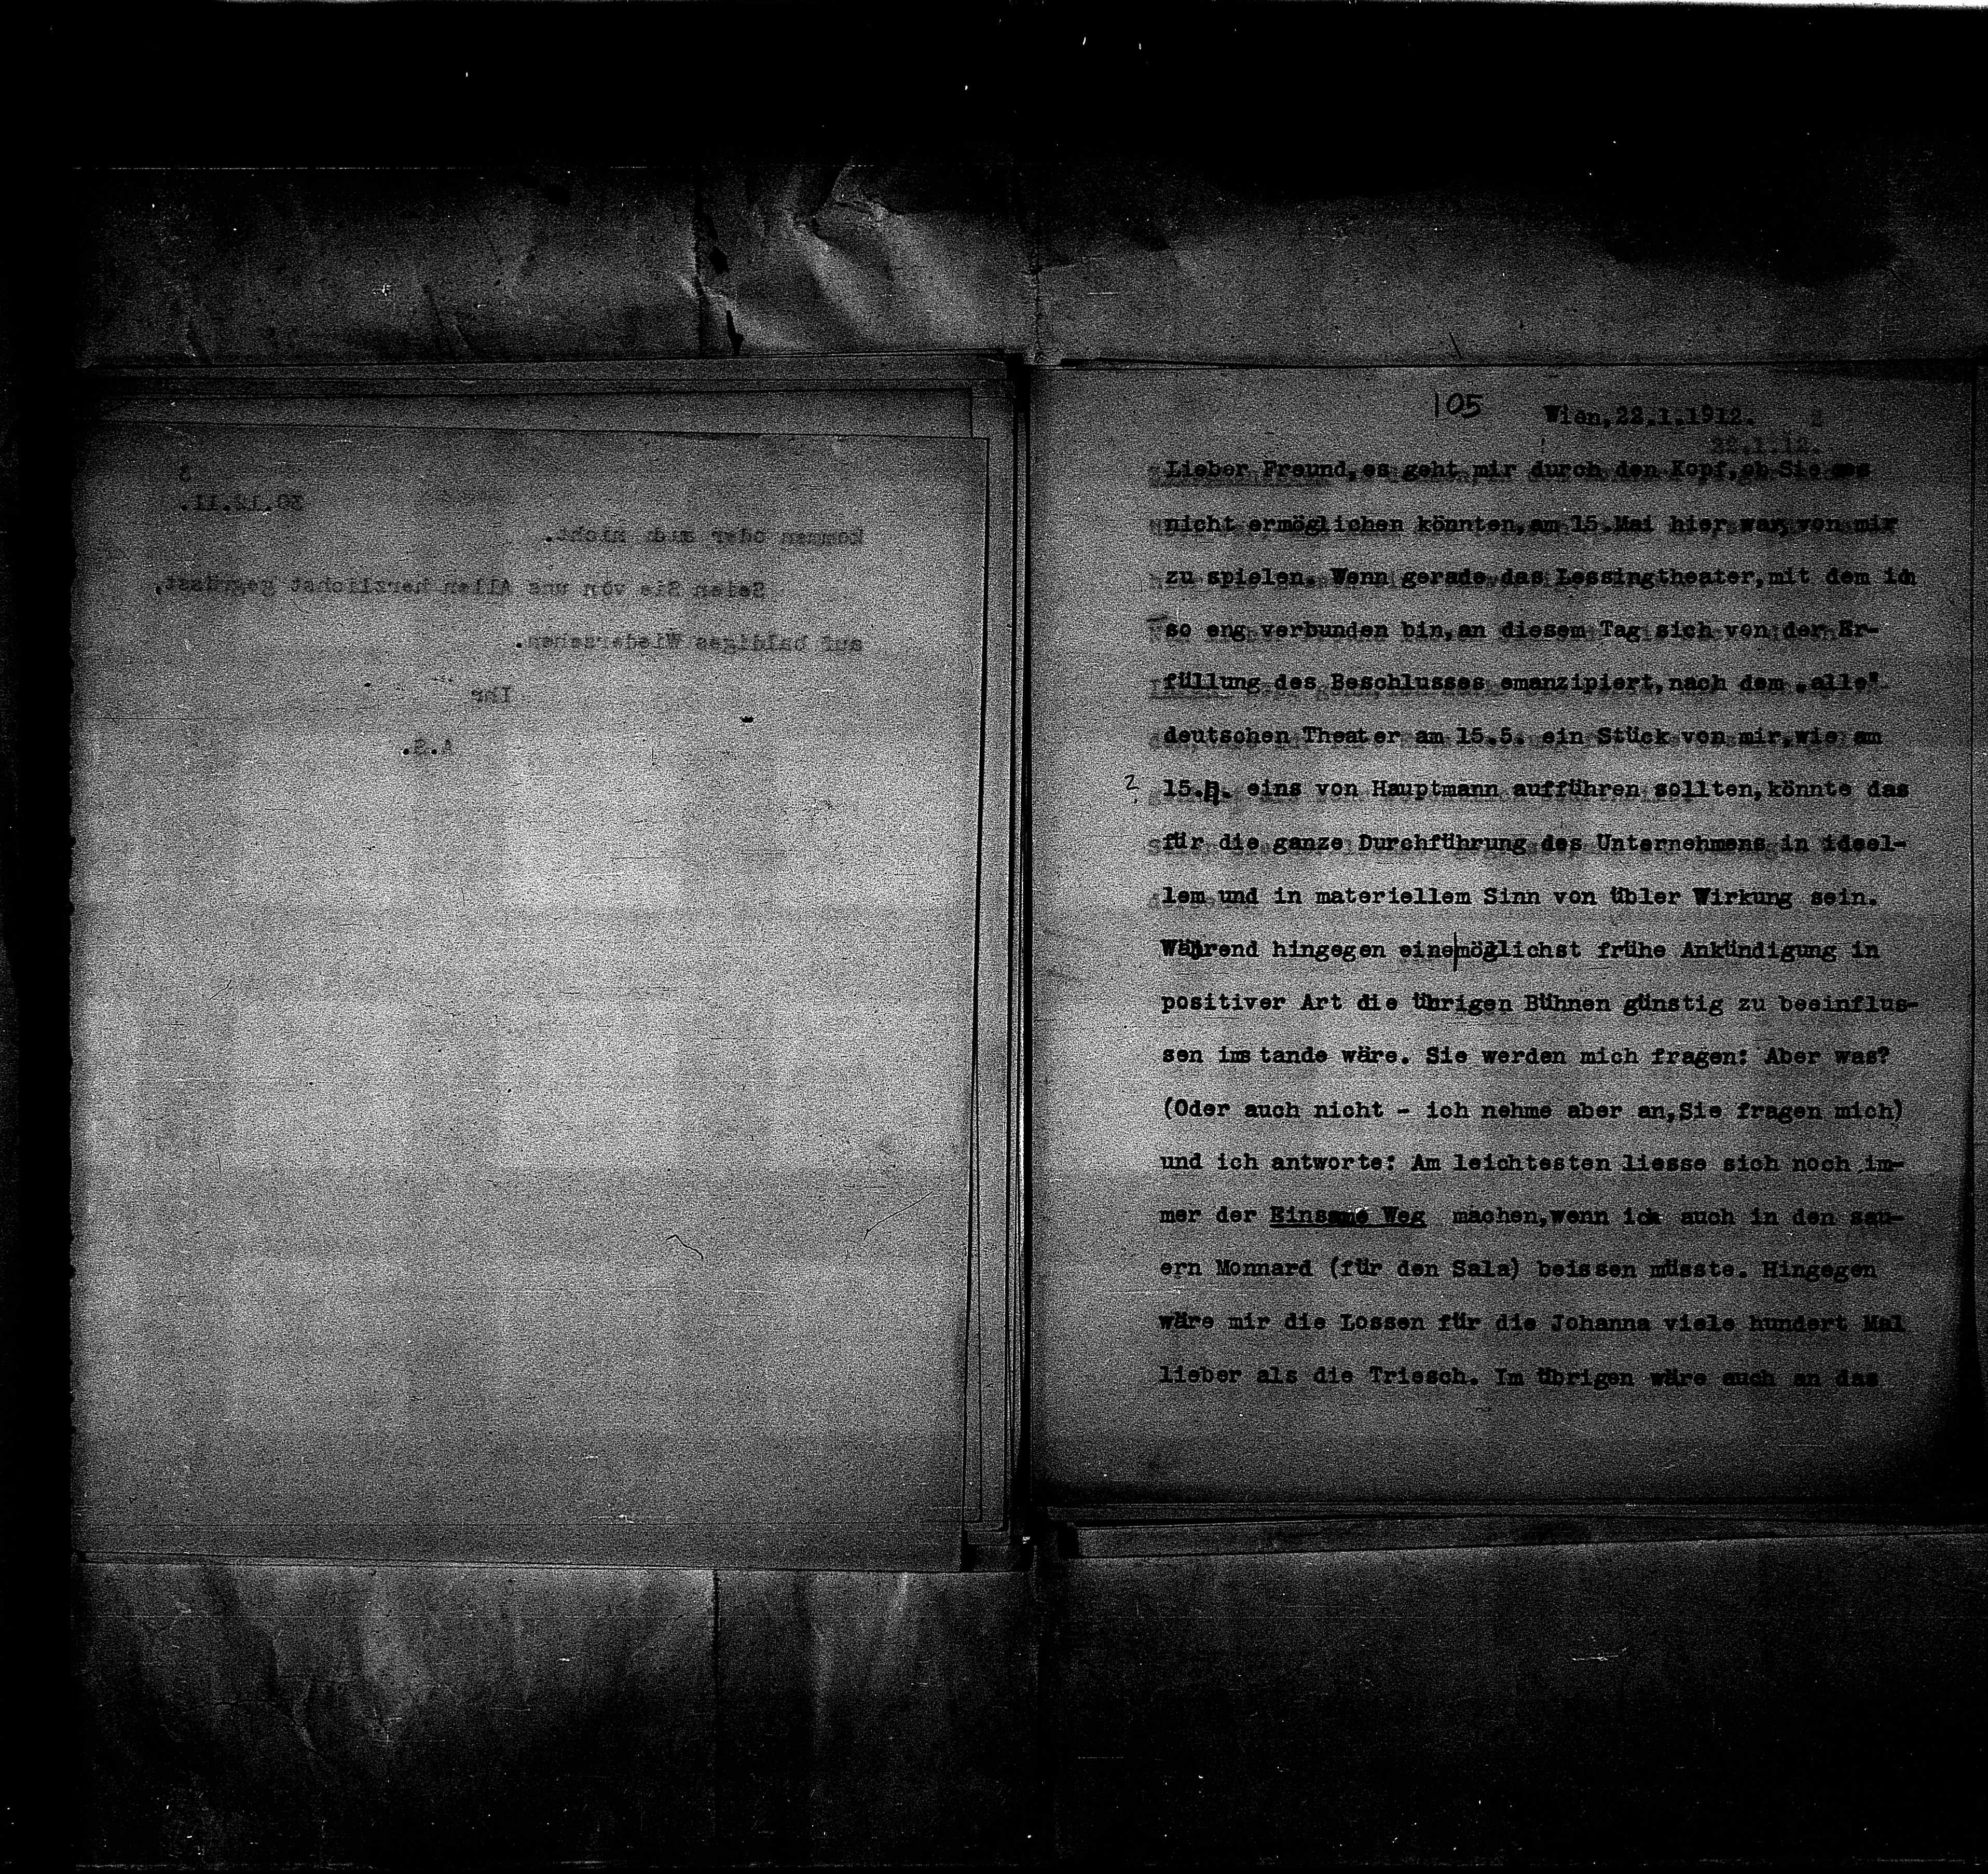 3
30.12.11.
kommen oder auch nicht.
Seien Sie von uns Allen herzlichst gegrüsst,
auf baldiges Wiedersehen.
Ihr
A.S.
105
Wien,22.1.1912.
2
22.1.12.
Lieber Freund,es geht mir durch den Kopf,ob Sie es
nicht ermöglichen könnten,am 15.Mai hier was von mir
zu spielen. Wenn gerade das Lessingtheater,mit dem ich
so eng verbunden bin,an diesem Tag sich von der Er-
füllung des Beschlusses emanzipiert,nach dem „alle"
deutschen Theater am 15.5. ein Stück von mir,wie am
2
15. eins von Hauptmann aufführen sollten,könnte das
für die ganze Durchführung des Unternehmens in ideel-
lem und in materiellem Sinn von übler Wirkung sein.
Während hingegen eine|möglichst frühe Ankündigung in
positiver Art die übrigen Bühnen günstig zu beeinflus-
sen imstande wäre. Sie werden mich fragen: Aber was?
(Oder auch nicht - ich nehme aber an,Sie fragen mich)
und ich antworte: Am leichtesten liesse sich noch im-
mer der Einsame Weg machen,wenn ich auch in den sau-
ern Monnard (für den Sala) beissen müsste. Hingegen
wäre mir die Lossen für die Johanna viele hundert Mal
lieber als die Triesch. Im übrigen wäre auch an das